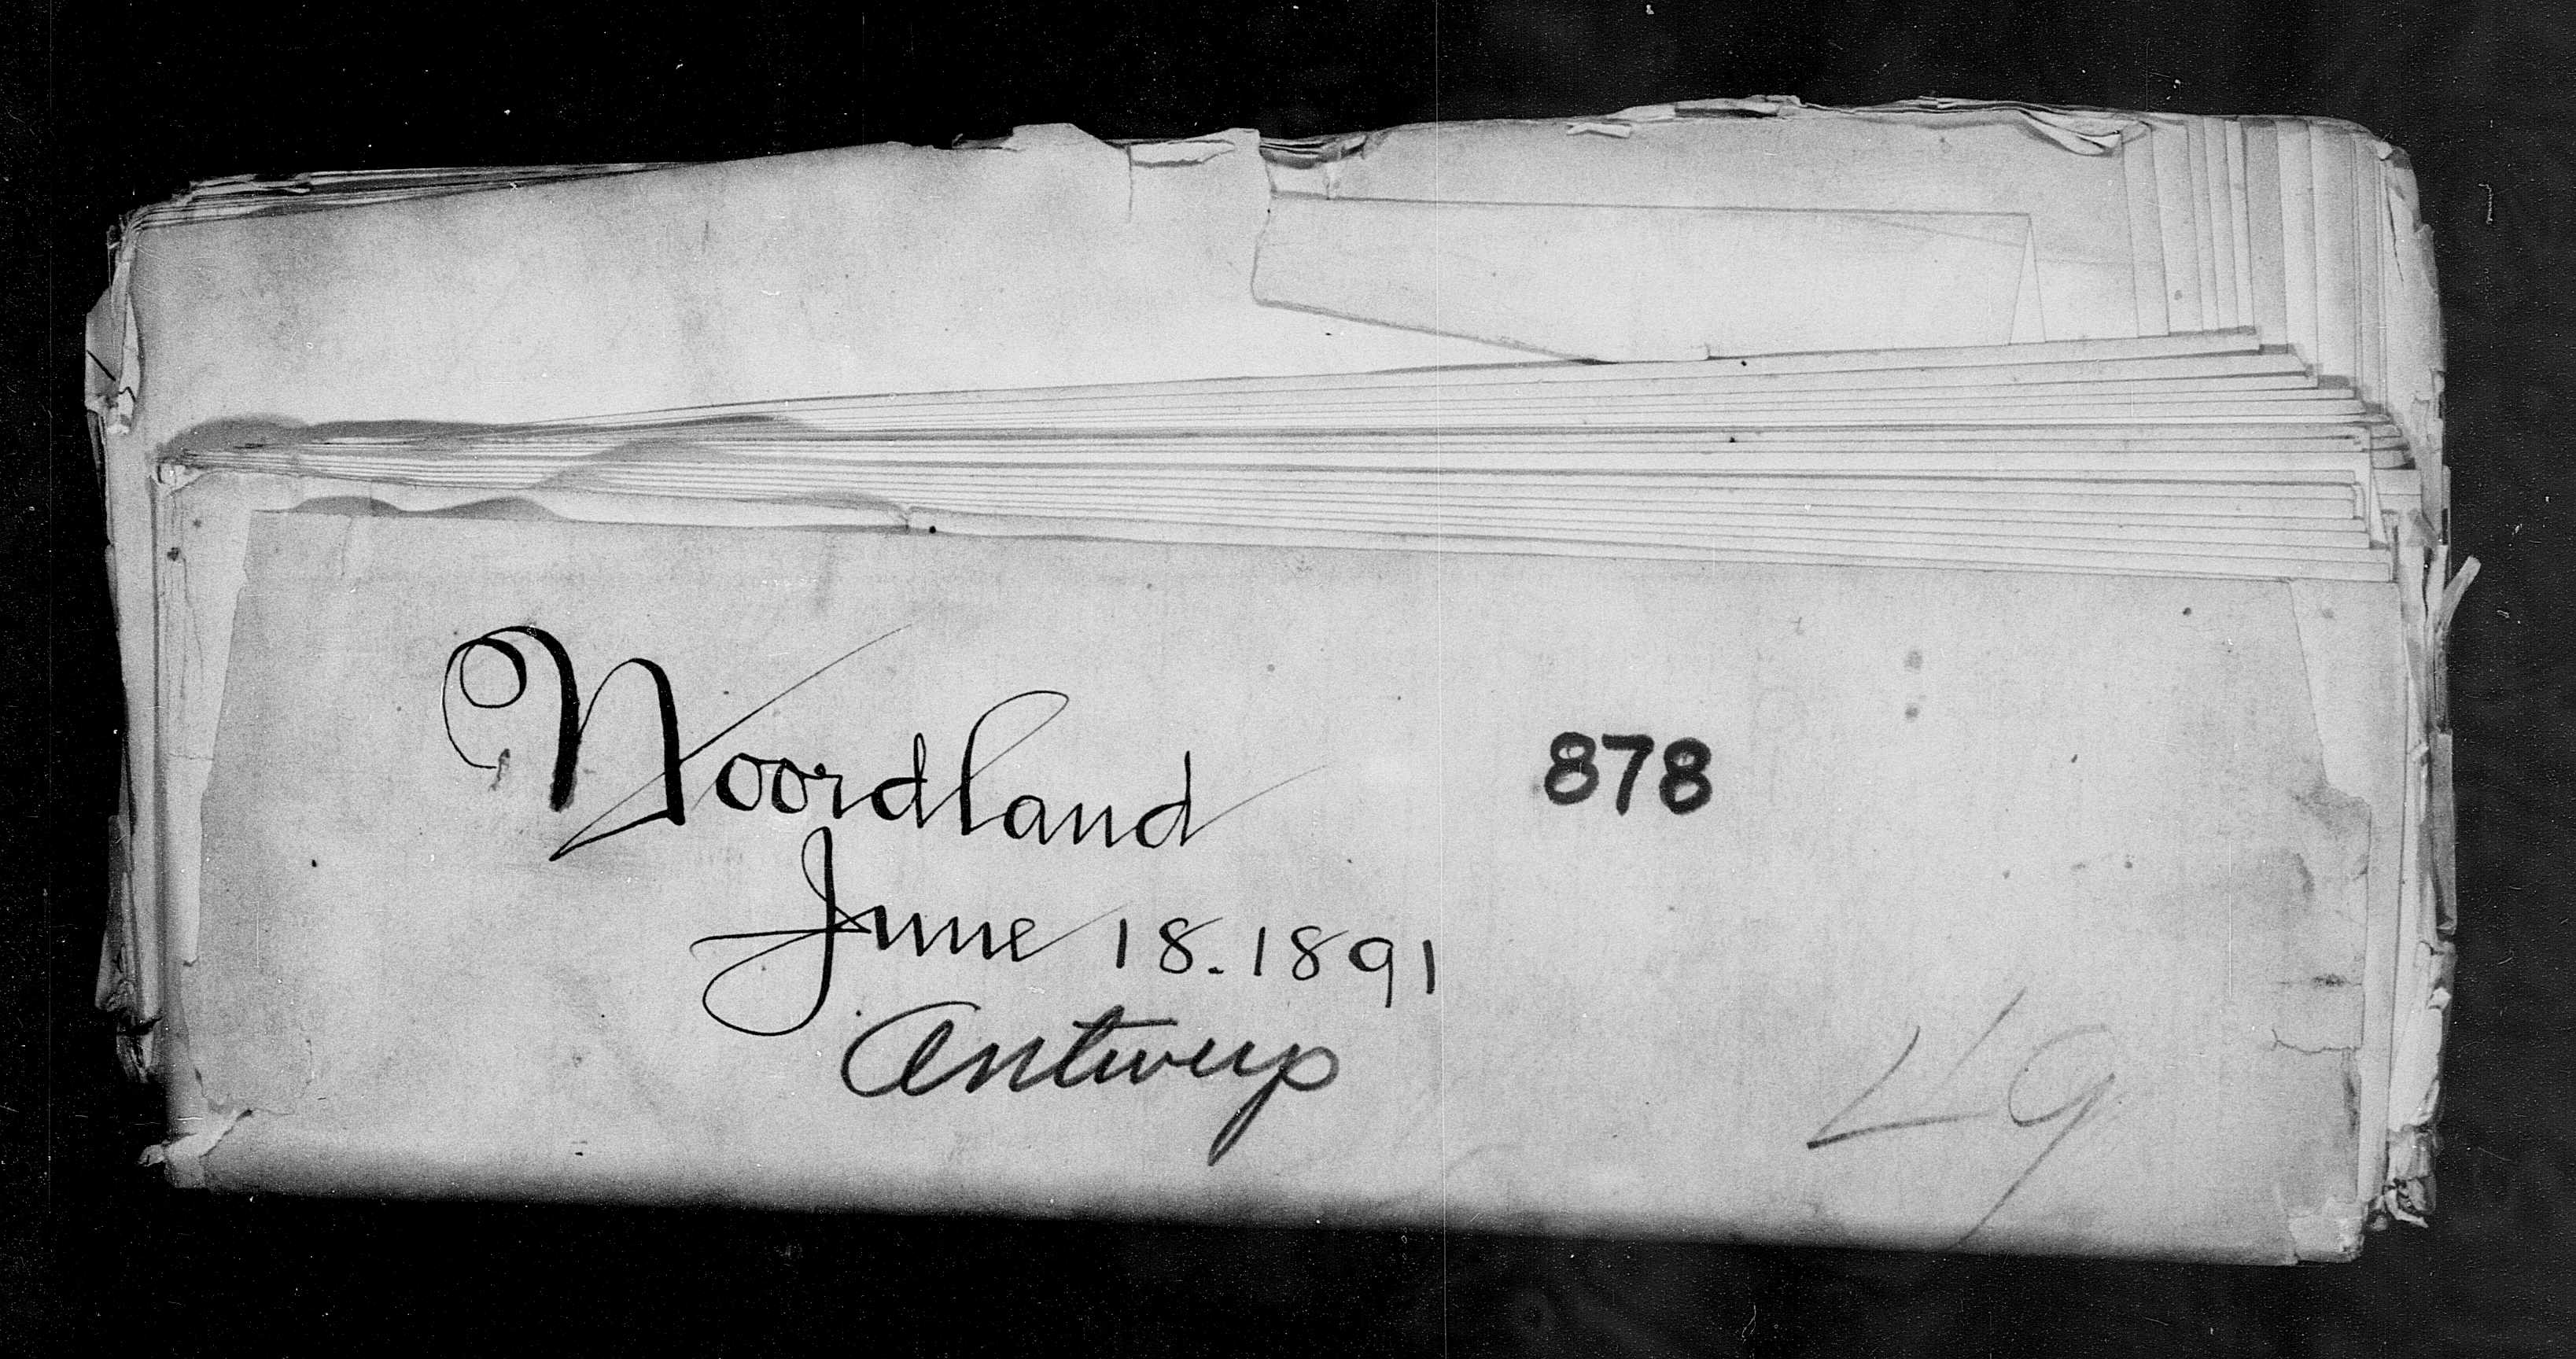 Noordland
878
June 18. 1891
Antwerp
49